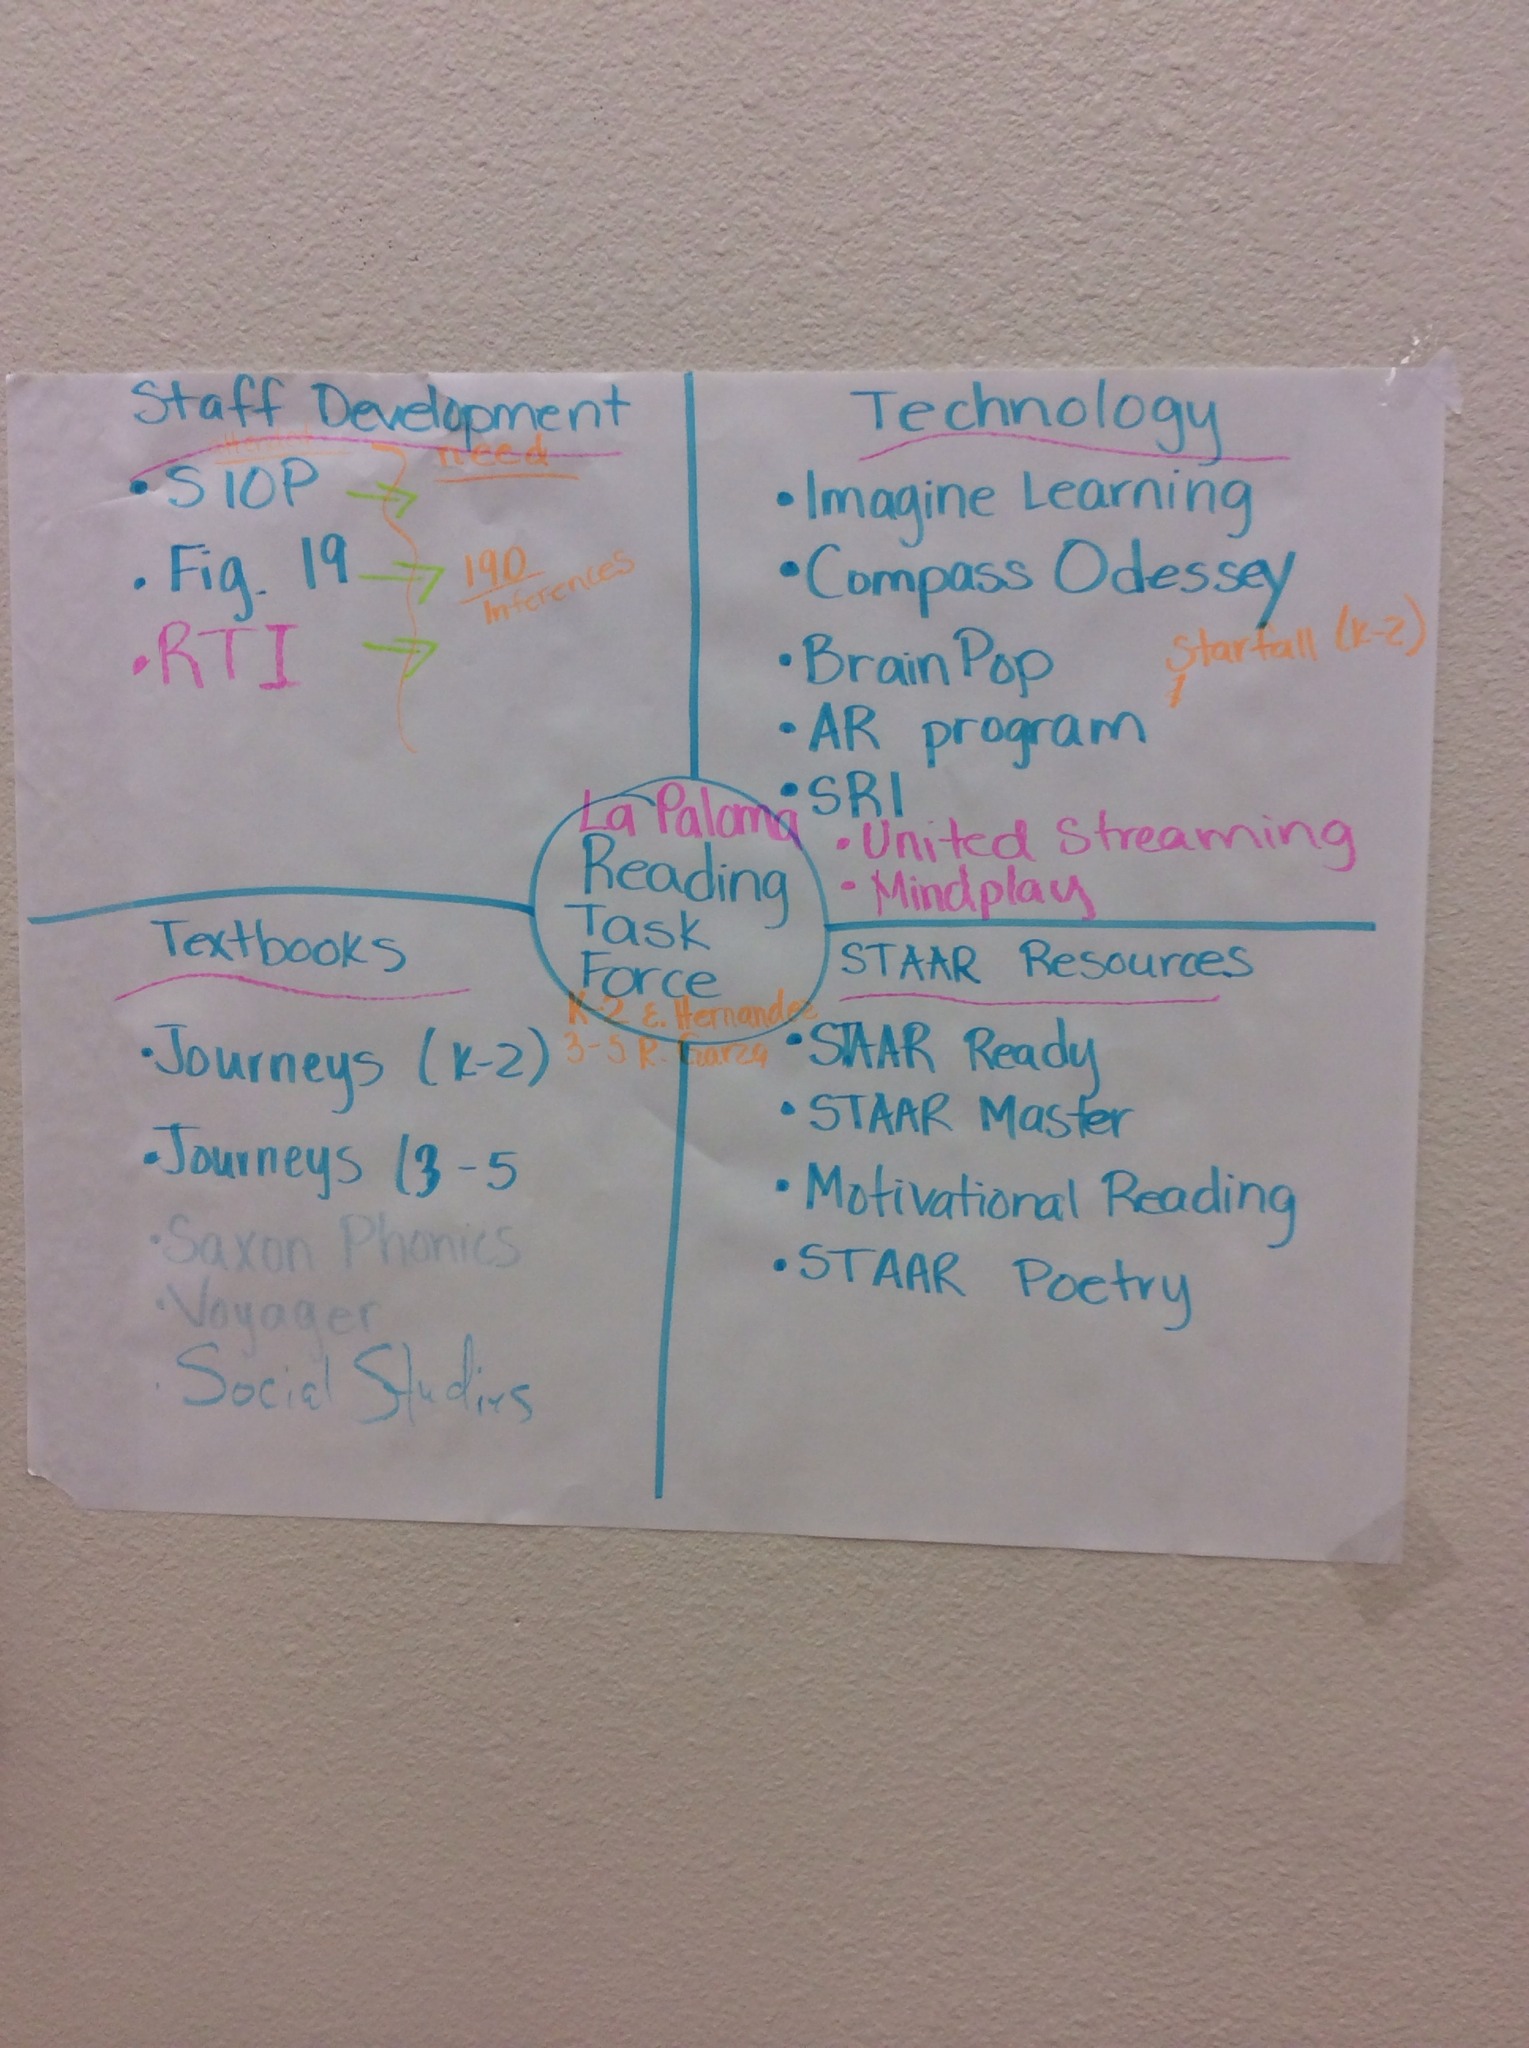 Staff Development
need
• SIOP
• Fig. 19
19D
Inferences
• RTI
Technology
• Imagine Learning
• Compass Odessey
Starfall (K-2)
• BrainPop
• AR program
• SRI
• United Streaming
• Mindplay
La Paloma
Reading
Task
Force
K-2 E. Hernandez
3-5 R. Garza
Textbooks
• Journeys (K-2)
• Journeys (3-5
• Saxon Phonics
• Voyager
• Social Studies
STAAR Resources
• STAAR Ready
• STAAR Master
• Motivational Reading
• STAAR Poetry